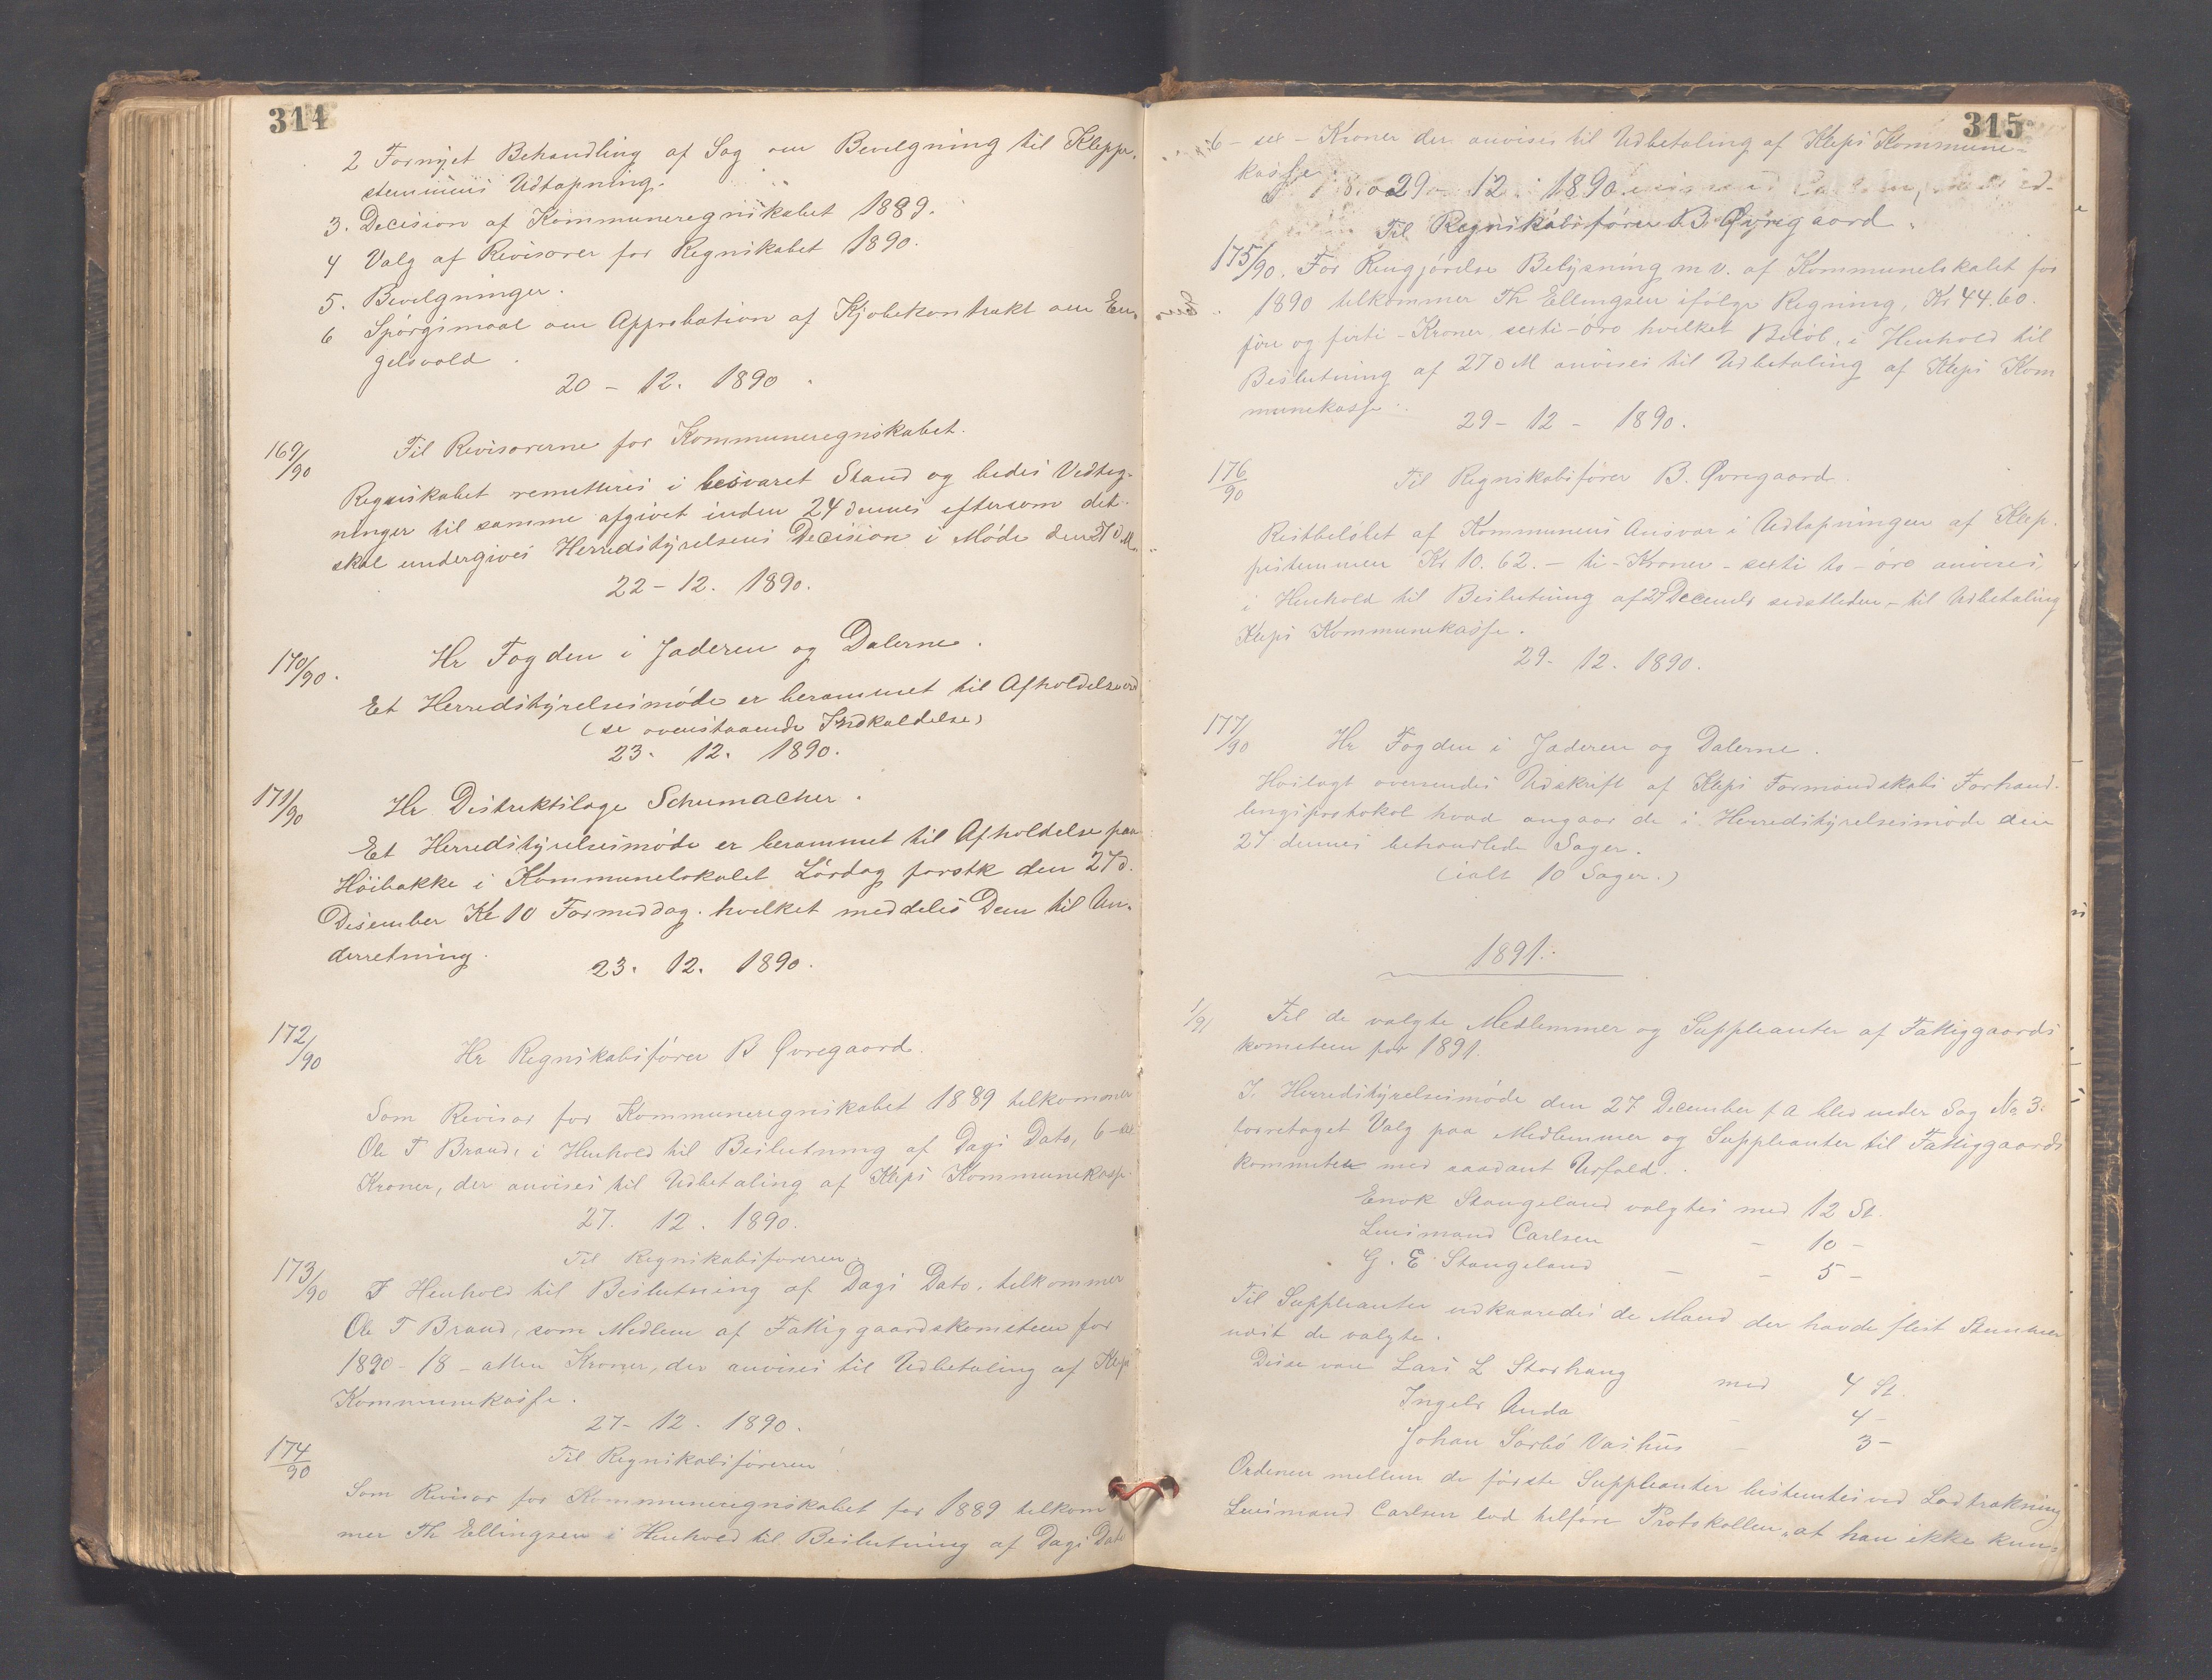 314
2 Fornyet Behandling af Sag om Bevilgning til Kleppe-
stemmens Udtapning.
3. Decision af Kommuneregnskabet 1889.
4 Valg af Revisorer for Regnskabet 1890.
5. Bevilgninger.
6 Spörgsmaal om Approbation af Kjöbekontrakt om En-
gelsvold
20 – 12. 1890.
169/90
Til Revisorerne for Kommuneregnskabet.
Regnskabet remitteres i besvaret Stand og bedes Vedteg-
ninger til samme afgivet inden 24 dennes eftersom det
skal undergives Herredstyrelsens Decision i Möde den 27 d M.
22 – 12. 1890.
170/90.
Hr Fogden i Jæderen og Dalerne.
Et Herredstyrelsesmöde er berammet til Afholdelse
(se ovenstaaende Indkaldelse)
23. 12. 1890.
171/90
Hr Distriktslæge Schumacher.
Et Herredstyrelsesmöde er berammet til Afholdelse paa
Höibakke i Kommunelokalet Lördag förstk den 27 d.
Desember Kl 10 Formiddag. hvilket meddeles Dem til Un-
derretning.
23. 12. 1890.
172/90
Hr Regnskabsförer B Øvregaard.
Som Revisor for Kommuneregnskabet 1889 tilkommer
Ole T Braud, i Henhold til Beslutning af Dags Dato, 6 – sex
Kroner, der anvises til Udbetaling af Kleps Kommunekasse.
27. 12. 1890.
Til Regnskabsföreren.
173/90
I Henhold til Beslutning af Dags Dato, tilkommer
Ole T Braud, som Medlem af Fattiggaardskomiteen for
1890 – 18 – atten Kroner, der anvises til Udbetaling af Klep
Kommunekasse.
27 – 12. 1890.
174/90
Til Regnskabsföreren
Som Revisor for Kommuneregnskabet for 1889 tilkom
mer Th Ellingsen i Henhold til Beslutning af Dags Dato
315
6 – sex – Kroner der anvises til Udbetaling af Kleps Kommune-
kasse
29 12 1890
Til Regnskabsförer B. Øvregaard.
175/90.
For Rengjörelse Belysning m v. af Kommunelokalet for
1890 tilkommer Th Ellingsen ifölge Regning, Kr 44.60.
fire og firti – Kroner sexti – öre hvilket Belöb, i Henhold til
Beslutning af 27 d M anvises til Udbetaling af Kleps Kom
munekasse.
29 – 12 – 1890.
176/90
Til Regnskabsförer B. Øvregaard.
Restbelöbet af Kommunens Ansvar i Udtapningen af Klep-
pestemmen Kr 10.62. – ti – Kroner – sexti to – öre anvises,
i Henhold til Beslutning af 27 Decembr sidstleden – til Udbetaling
Kleps Kommunekasse.
29 – 12. 1890.
177/90
Hr Fogden i Jæderen og Dalerne.
Höilagt oversendes Udskrift af Kleps Formandskabs Forhand-
lingsprotokol hvad angaar de i Herredstyrelsesmöde den
27 dennes behandlede Sager.
(ialt 10 Sager.)
1891.
1/91
Til de valgte Medlemmer og Suppleanter af Fattiggaards
komiteen for 1891.
I Herredstyrelsesmöde den 27 December f A blev under Sag No 3.
foretaget Valg paa Medlemmer og Suppleanter til Fattiggaards
kommiteen med saadant Udfald.
Enok Stangeland valgtes med 12 St.
Lensmand Carlsen – 10 –
G. E. Stangeland – – 5 –
Til Suppleanter udkaaredes de Mænd der havde flest Stemmer
næst de valgte.
Disse vare Lars L Storhaug med 4 St.
Ingebr Anda 4 –
Johan Sörbö Vashus – 3 –
Ordenen mellem de förste Suppleanter bestemtes ved Lodtrækning
Lensmand Carlsen lod tilföre Protokollen, at han ikke kun-